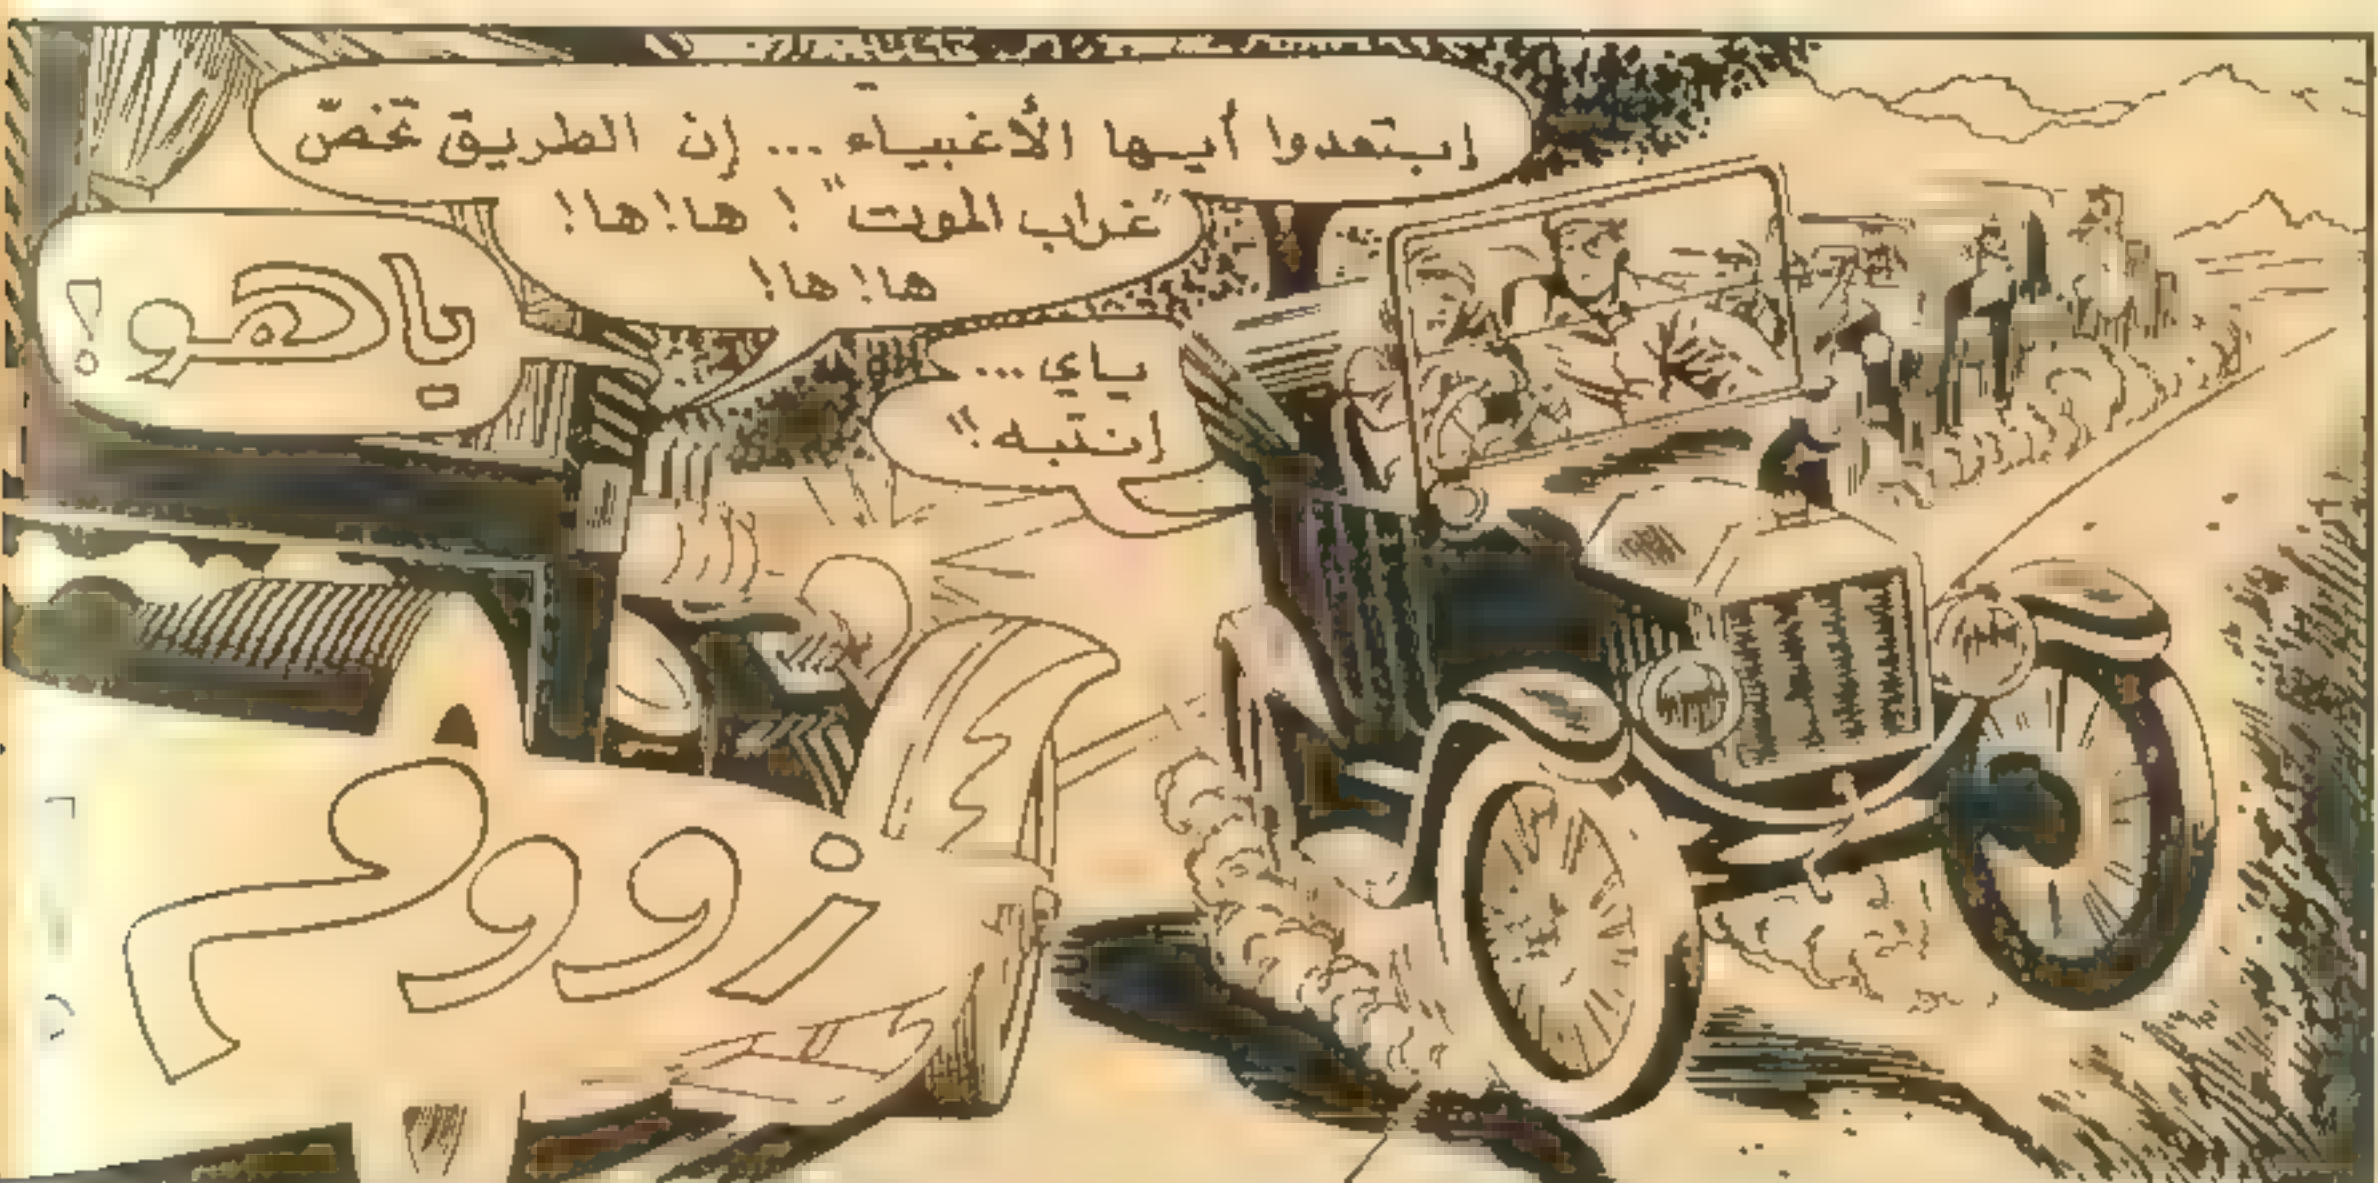 إبتعدوا أيها الأغبياء ... إن الطريق تخصّ
"غراب الموت" ! ها!ها!
ها! ها!
ياهو!
ياي ...
إنتبه!!
زووم